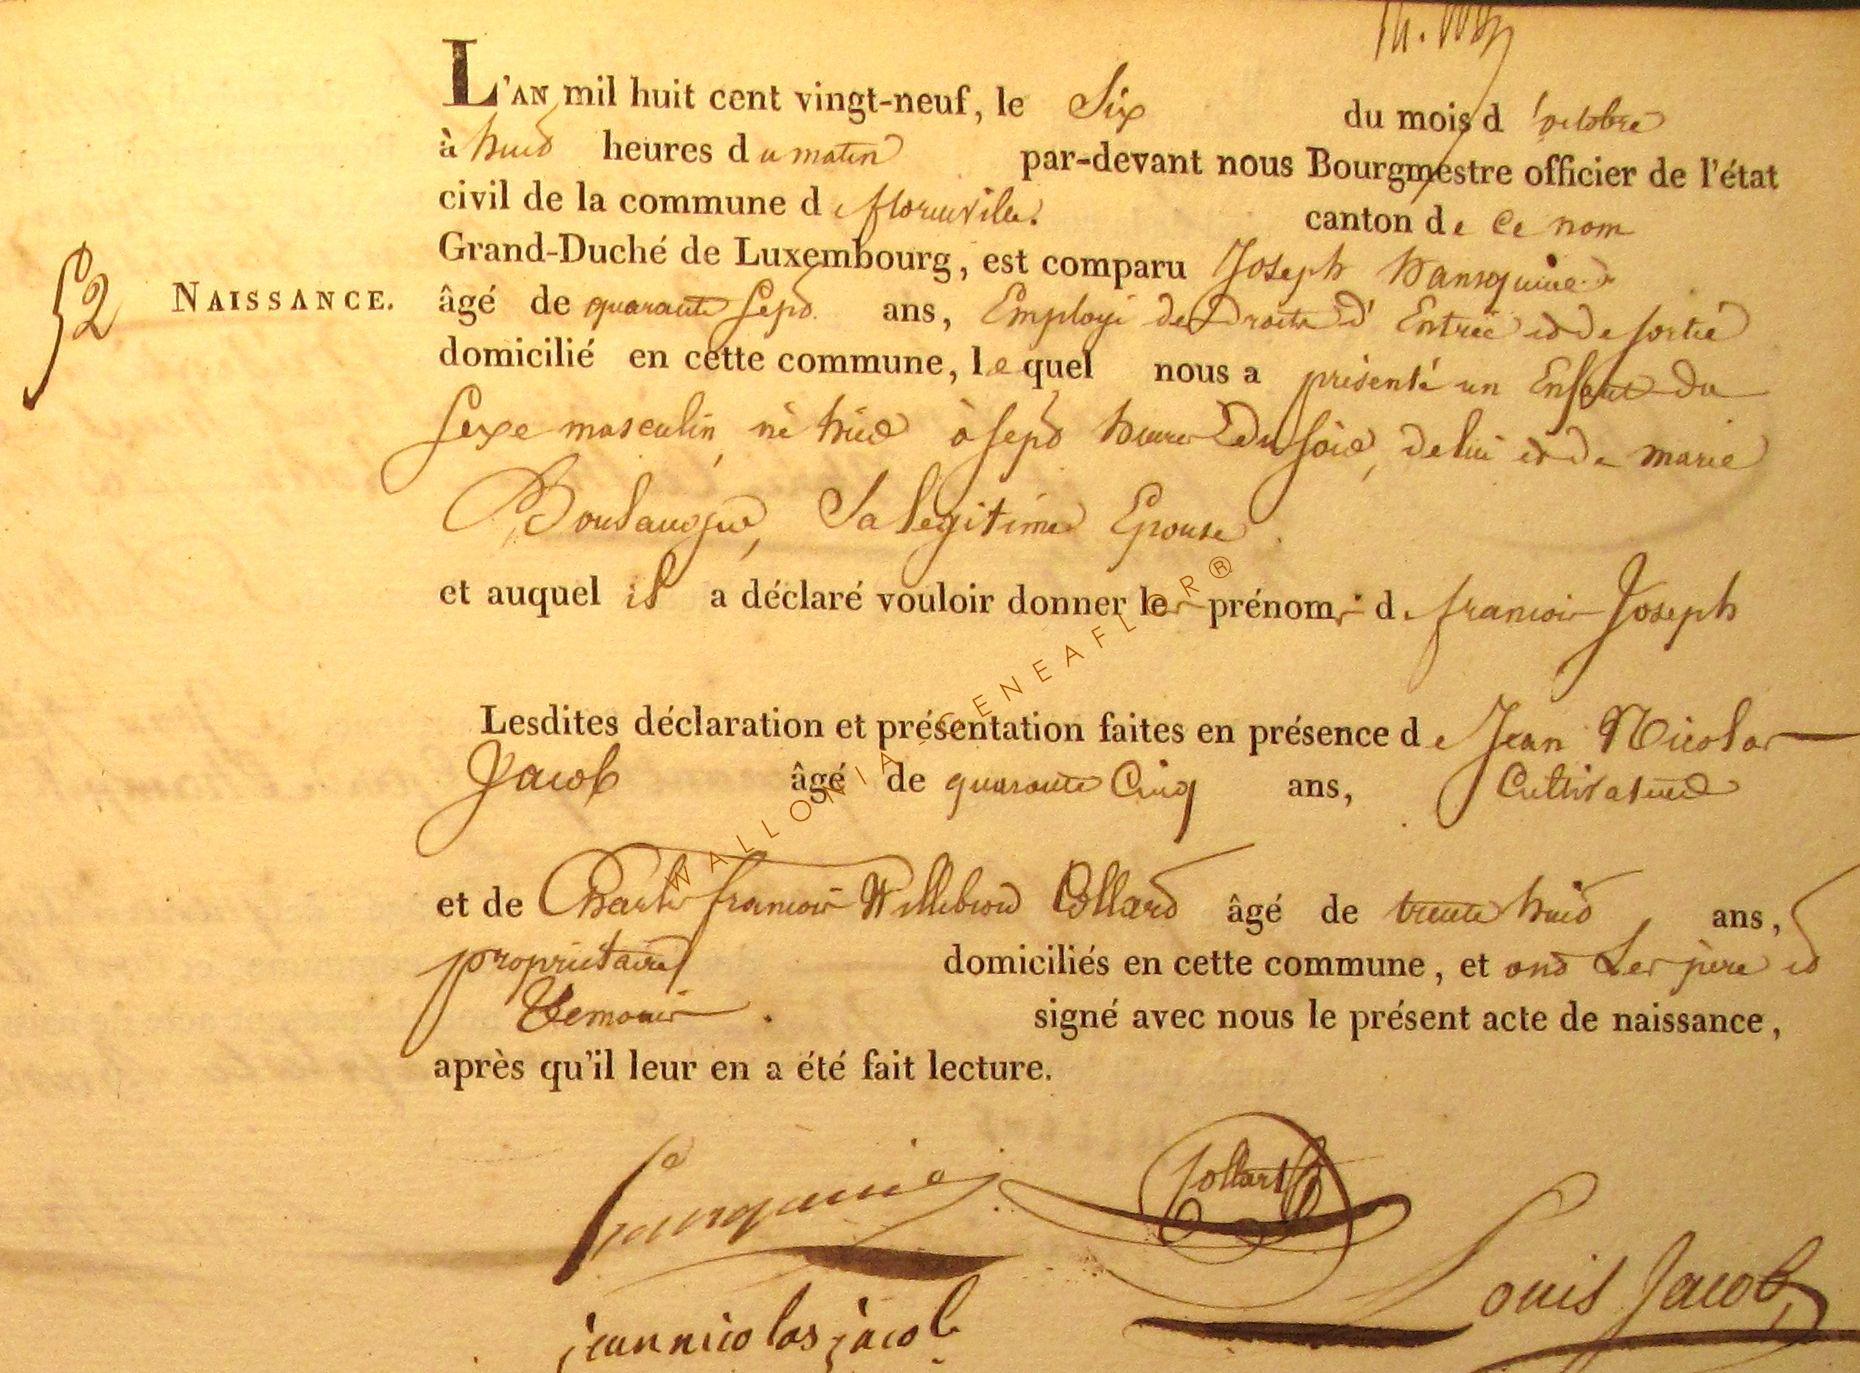 L'AN mil huit cent vingt-neuf, le Six du mois d'octobre
à huit heures du matin par-devant nous Bourgmestre officier de l'état
civil de la commune de florenville. canton de Ce nom
Grand-Duché de Luxembourg, est comparu Joseph hansquine
52 NAISSANCE. âgé de quarante Sept ans, Employé des Droits d'Entrée et de sortie
domicilié en cette commune, lequel nous a présenté un Enfant du
sexe masculin, né hier à Sept heures du soir, de lui et de marie
Boulanger, Sa legitime Epouse.
et auquel il a déclaré vouloir donner les prénoms de francois Joseph
Lesdites déclaration et présentation faites en présence de Jean Nicolas
Jacob âgé de quarante Cinq ans, Cultivateur
et de Charles francois Willebrord Collard âgé de trente huit ans,
propriétaire domiciliés en cette commune, et ont Les père et
temoins. signé avec nous le présent acte de naissance,
après qu'il leur en a été fait lecture.
hansquine Collard
jean nicolas jacob Louis Jacob
WALLONIA GENEAFLOR®